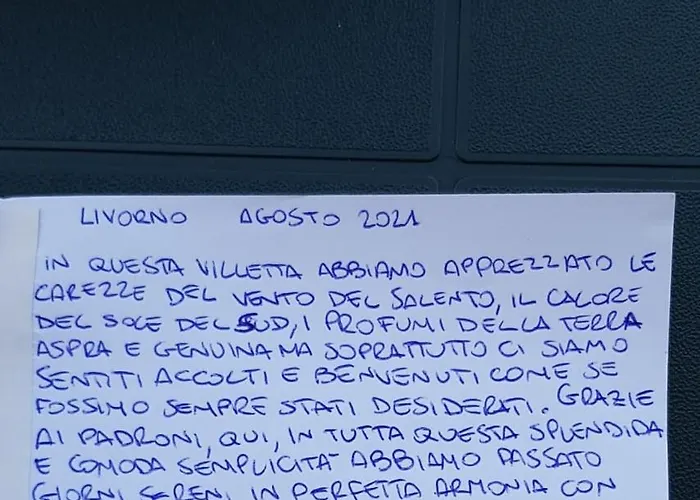 LIVORNO AGOSTO 2021
IN QUESTA VILLETTA ABBIAMO APPREZZATO LE
CAREZZE DEL VENTO DEL SALENTO, IL CALORE
DEL SOLE DEL SUD, I PROFUMI DELLA TERRA
ASPRA E GENUINA MA SOPRATTUTTO CI SIAMO
SENTITI ACCOLTI E BENVENUTI COME SE
FOSSIMO SEMPRE STATI DESIDERATI. GRAZIE
AI PADRONI, QUI, IN TUTTA QUESTA SPLENDIDA
E COMODA SEMPLICITÀ ABBIAMO PASSATO
GIORNI SERENI IN PERFETTA ARMONIA CON